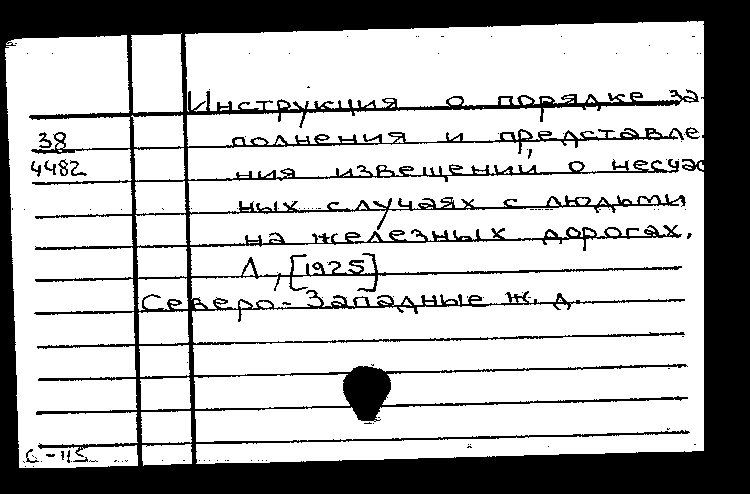 Инструкция о порядке за-
38
полнения и представле
4482
ния извещений о несчас
ных случаях с людьми
на железных дорогах.
Л., [1925].
Северо-Западные ж. д.
С-115